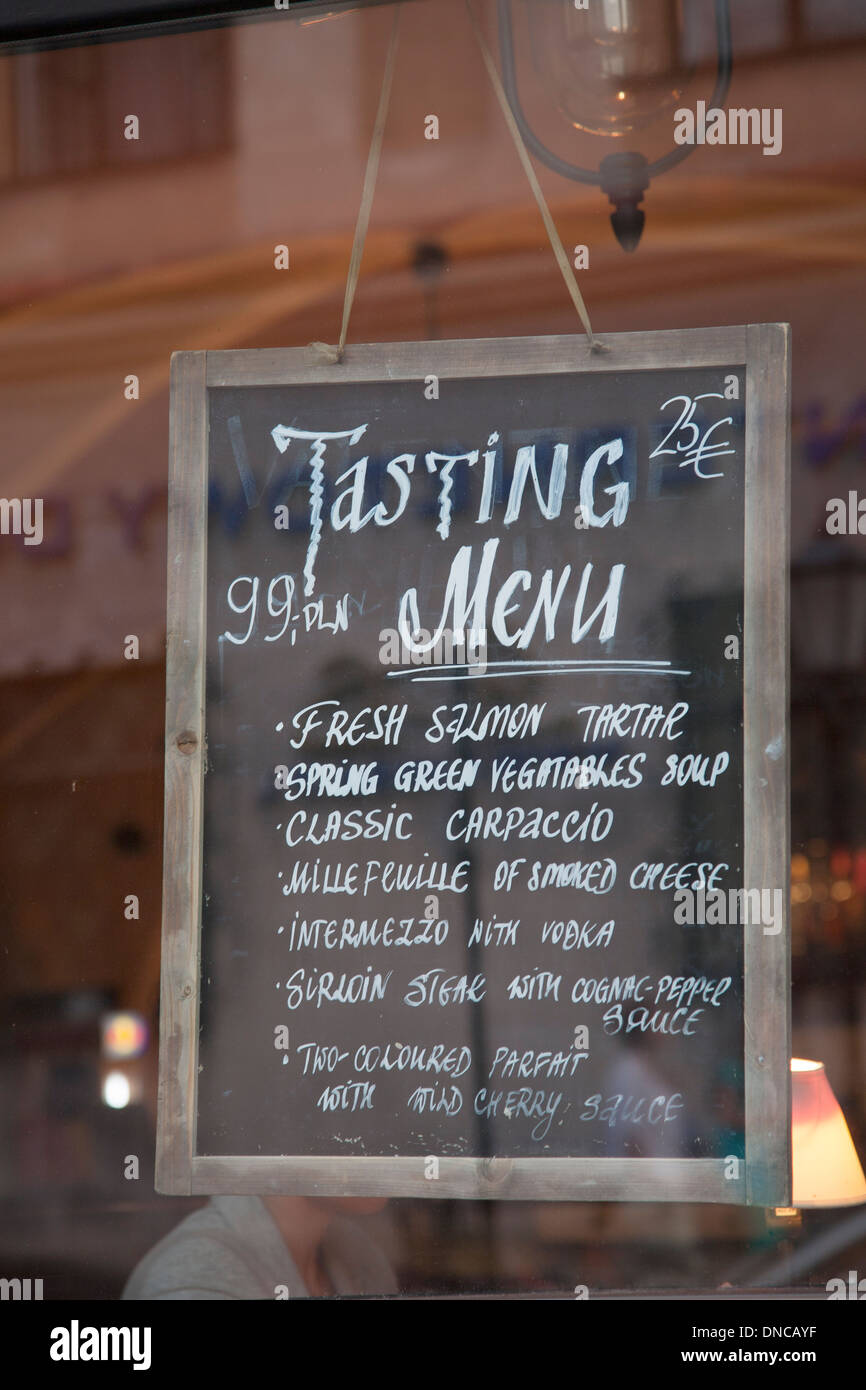 25€
Tasting
99,- PLN
Menu
· Fresh salmon tartar
· Spring green vegatables soup
· Classic carpaccio
· Millefeuille of smoked cheese
· Intermezzo with vodka
· Sirloin steak with cognac-pepper
sauce
· Two-coloured parfait
with wild cherry sauce
alamy
Image ID: DNCAYF
www.alamy.com